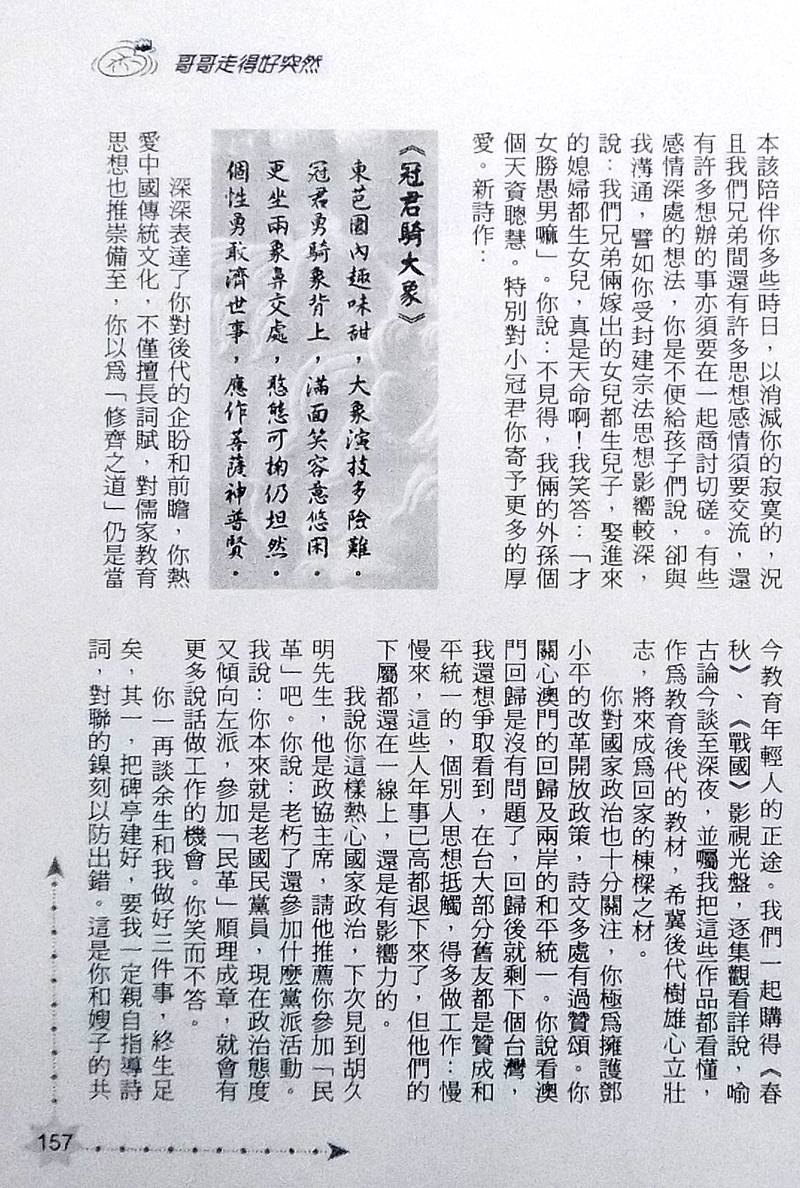 哥哥走得好突然
本該陪伴你多些時日，以消減你的寂寞的，況
且我們兄弟間還有許多思想感情須要交流，還
有許多想辦的事亦須要在一起商討切磋。有些
感情深處的想法，你是不便給孩子們說，卻與
我溝通，譬如你受封建宗法思想影響較深，
說：我們兄弟倆嫁出的女兒都生兒子，娶進來
的媳婦都生女兒，真是天命啊！我笑答：「才
女勝愚男嘛」。你說：不見得，我倆的外孫個
個天資聰慧。特別對小冠君你寄予更多的厚
愛。新詩作：
《冠君騎大象》
東芭園內趣味甜，大象演技多險難。
冠君勇騎象背上，滿面笑容意悠闲。
更坐兩象鼻交處，憨態可掬仍坦然。
個性勇敢濟世事，應作菩薩神普賢。
深深表達了你對後代的企盼和前瞻，你熱
愛中國傳統文化，不僅擅長詞賦，對儒家教育
思想也推崇備至，你以為「修齊之道」仍是當
今教育年輕人的正途。我們一起購得《春
秋》、《戰國》影視光盤，逐集觀看詳說，喻
古論今談至深夜，並囑我把這些作品都看懂，
作為教育後代的教材，希冀後代樹雄心立壯
志，將來成為回家的棟樑之材。
你對國家政治也十分關注，你極為擁護鄧
小平的改革開放政策，詩文多處有過贊頌。你
關心澳門的回歸及兩岸的和平統一。你說看澳
門回歸是沒有問題了，回歸後就剩下個台灣，
我還想爭取看到，在台大部分舊友都是贊成和
平統一的，個別人思想抵觸，得多做工作：慢
慢來，這些人年事已高都退下來了，但他們的
下屬都還在一線上，還是有影響力的。
我說你這樣熱心國家政治，下次見到胡久
明先生，他是政協主席，請他推薦你參加「民
革」吧。你說：老朽了還參加什麼黨派活動。
我說：你本來就是老國民黨員，現在政治態度
又傾向左派，參加「民革」順理成章，就會有
更多說話做工作的機會。你笑而不答。
你一再談余生和我做好三件事，終生足
矣，其一，把碑亭建好，要我一定親自指導詩
詞，對聯的鎳刻以防出錯。這是你和嫂子的共
157